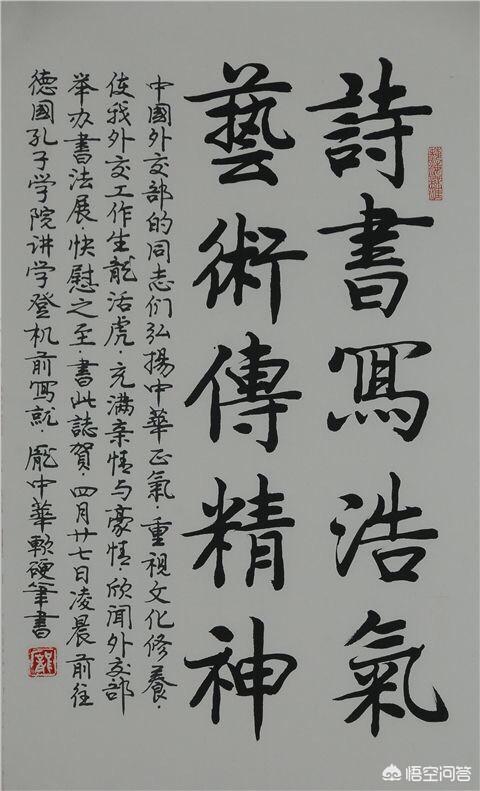 詩書寫浩氣
藝術傳精神
中國外交部的同志们弘揚中華正氣·重視文化修養·
使我外交工作生龍活虎·充满亲情与豪情·欣闻外交部
举办書法展·快慰之至·書此誌賀·四月廿七日凌晨前往
德國孔子学院讲学登机前寫就·龐中華軟硬筆書
龐
悟空问答